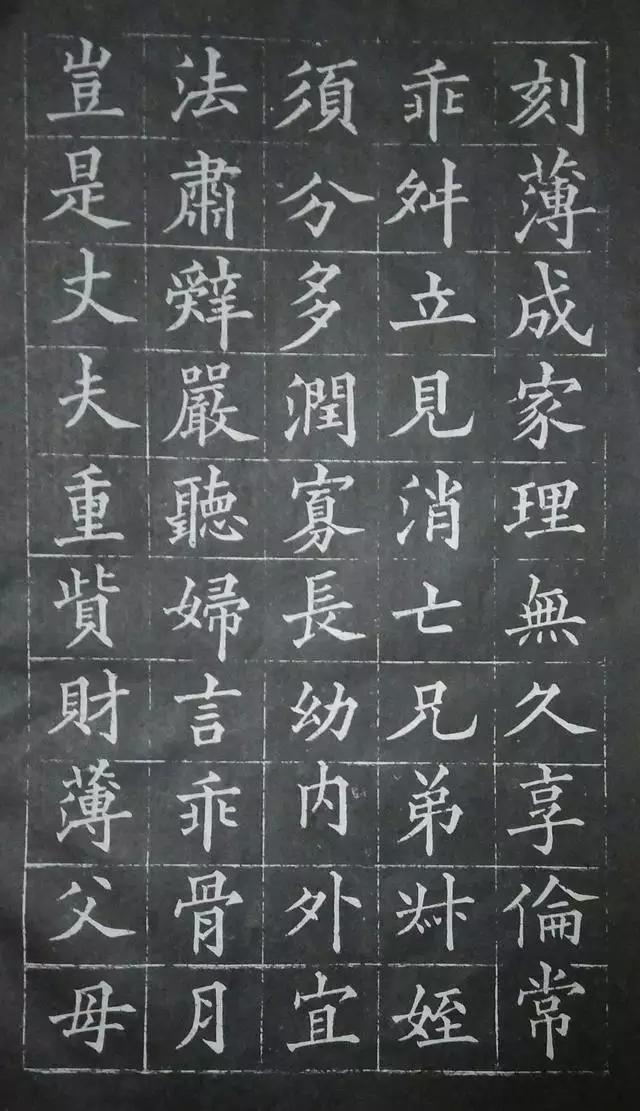 刻薄成家理無久享倫常
乖舛立見消亡兄弟叔姪
須分多潤寡長幼内外宜
法肅辤嚴聽婦言乖骨月
豈是丈夫重貲財薄父母